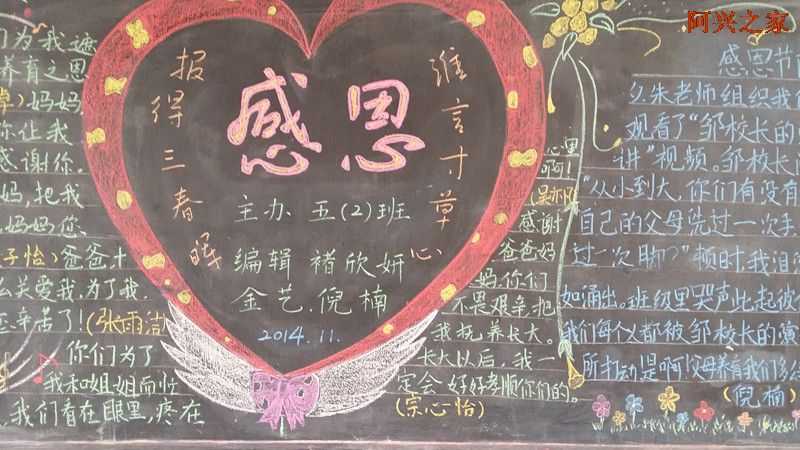 阿兴之家
们为我遮
养育之恩
妈妈,
你让我
感谢你.
妈,把我
妈妈您
子怡)爸爸,
么关爱我,为了我,
辛苦了!(张雨洁)
你们为了
我和姐姐而忙
,我们看在眼里,疼在
谁言寸草心
报得三春晖
感恩
主办 五(2)班
编辑 褚欣妍
金艺.倪楠
2014.11.
心里
啊!
感谢
爸爸妈
妈.你们
不畏艰辛,把
我抚养长大。
长大以后,我一
定会好好孝顺你们的。
(宗心一怡)
感恩节
朱老师组织我们
观看了"邹校长的
讲"视频。邹校长
"从小到大,你们有没有
自己的父母洗过一次手
过一次脚?"顿时,我泪
如涌出。班级里哭声此起彼
我们每个人都被邹校长的演
所打动.是啊!父母养育我们多
(倪楠)